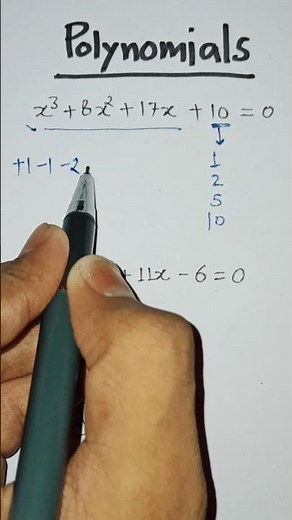 Polynomials
x³ + 8x² + 17x + 10 = 0
+1 -1 -2
1
2
5
10
+ 11x - 6 = 0